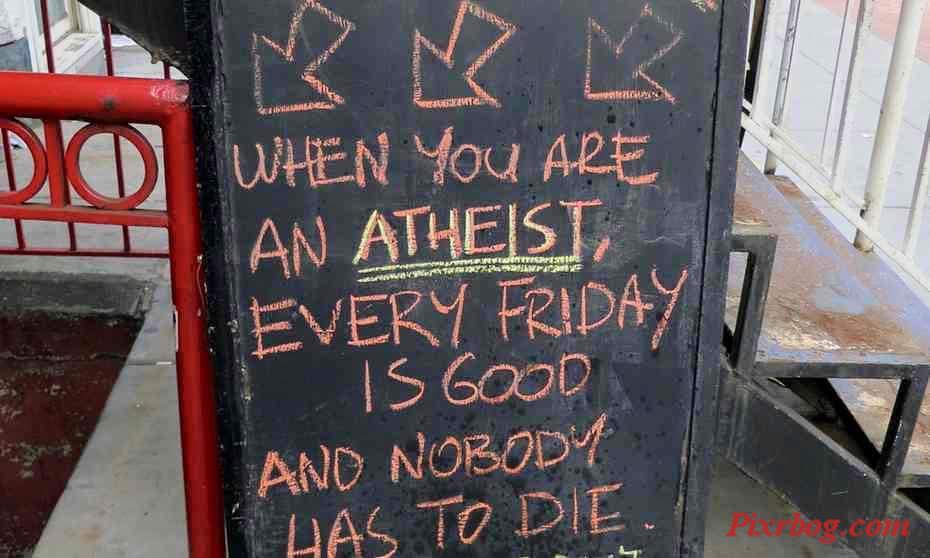 WHEN YOU ARE
AN ATHEIST,
EVERY FRIDAY
IS GOOD
AND NOBODY
HAS TO DIE.
Pixrbog.com